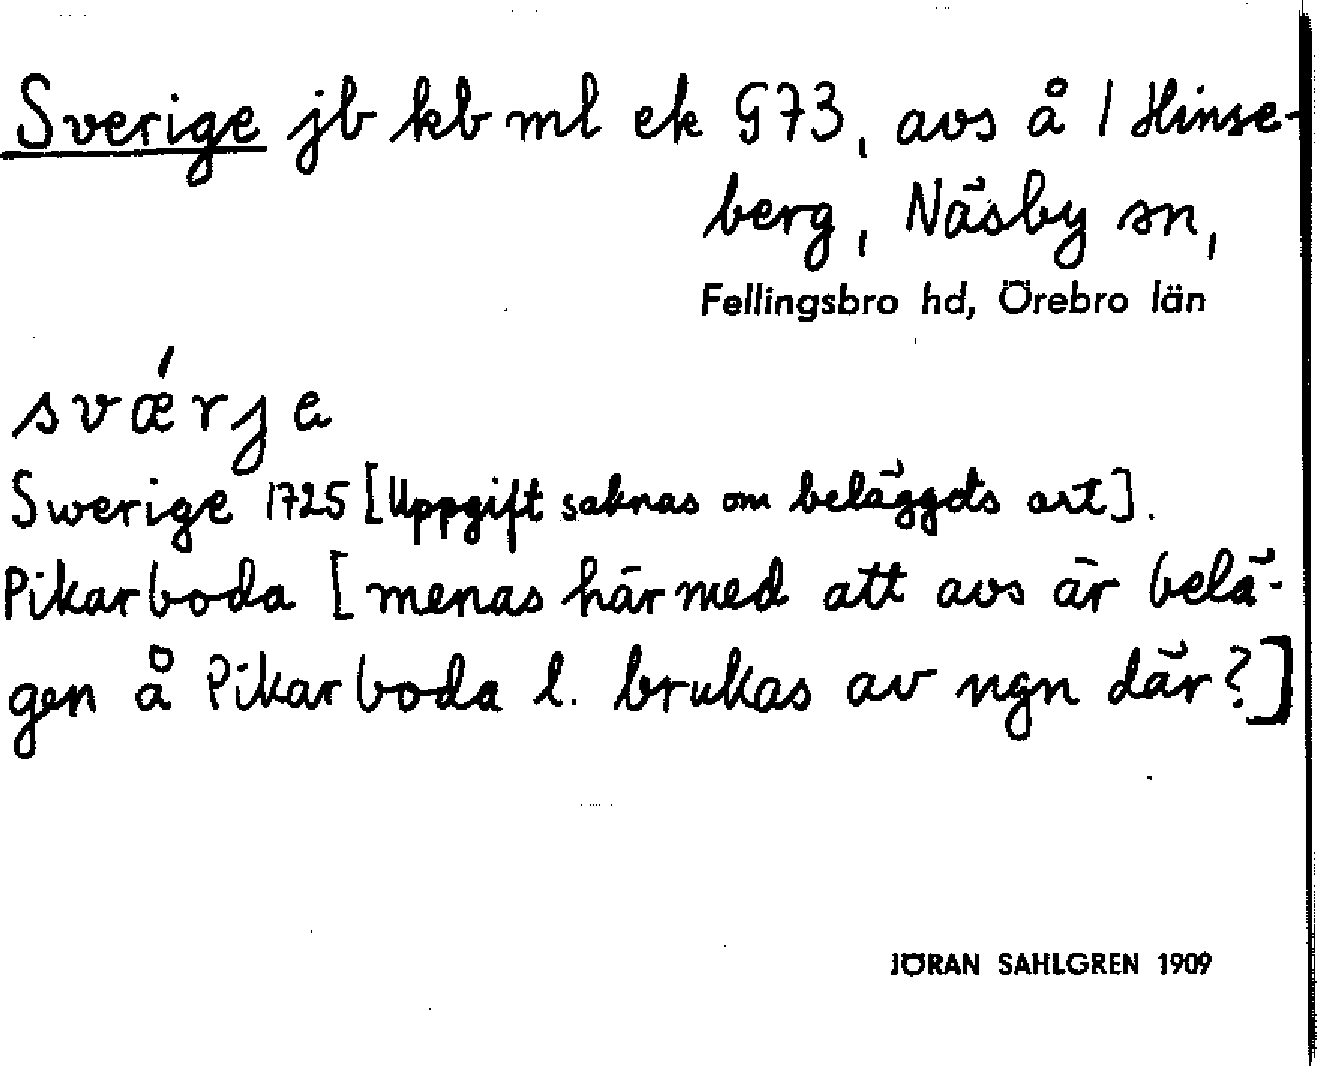 Sverige jb kb ml ek G73, avs å / Hinse-
berg, Näsby sn,
Fellingsbro hd, Örebro län
svǽrje
Swerige 1725 [Uppgift saknas om beläggets art].
Pikarboda [menas härmed att avs är belä-
gen å Pikarboda l. brukas av ngn där?]
JÖRAN SAHLGREN 1909